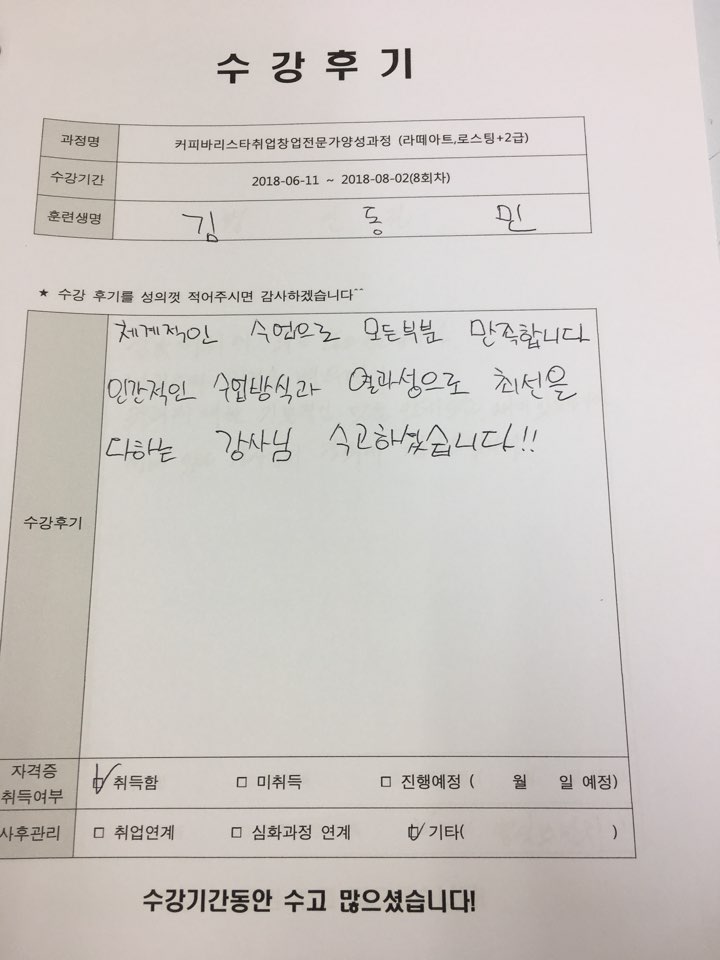 수강후기
과정명 커피바리스타취업창업전문가양성과정 (라떼아트,로스팅+2급)
수강기간 2018-06-11 ~ 2018-08-02(8회차)
훈련생명 김 동 민
★ 수강 후기를 성의껏 적어주시면 감사하겠습니다^^
체계적인 수업으로 모든부분 만족합니다
인간적인 수업방식과 열과성으로 최선을
다하는 강사님 수고하셨습니다!!
수강후기
자격증
취득여부 ☑ 취득함 □ 미취득 □ 진행예정 ( 월 일 예정)
사후관리 □ 취업연계 □ 심화과정 연계 ☑ 기타( )
수강기간동안 수고 많으셨습니다!